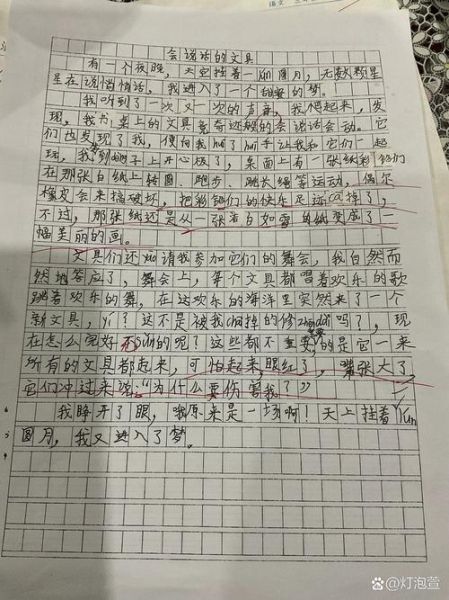 会说话的文具
有一个夜晚，天空挂着一lún圆月，无数颗星
星在说悄悄话，我进入了一个甜蜜的梦！
我听到了一次又一次的声音，我爬起来，发
现，我书桌上的文具竟奇迹般的会说话会动。它
们也发现了我，便向我huī了huī手让我和它们一起
玩，我到椅子上开心极了，桌面上有一张纸，它们
在那张白纸上转圈、跑步、跳长绳等运动，偶尔
橡皮会来搞破坏，把彩铅们的快乐足迹ca掉了，
不过，那张纸还是从一张洁白如雪的纸变成了一
幅美丽的画。
文具们还邀请我参加它们的舞会，我自然而
然地答应了，舞会上，每个文具都唱着欢乐的歌
跳着欢乐的舞，在这欢乐的海洋里突然来了一个
新文具，yí？这不是被我diū掉的修zhèng dài吗？，现
在怎么完好sǔn的呢？这些都不重要，的是它一来
所有的文具都起来，可怕起来，眼红了，嘴张大了，
它们冲过来说：“为什么要伤害我？”
我睁开了眼，哦原来是一场啊！天上挂着lún
圆月，我又进入了梦。
6
5
9
百家号/灯泡萱